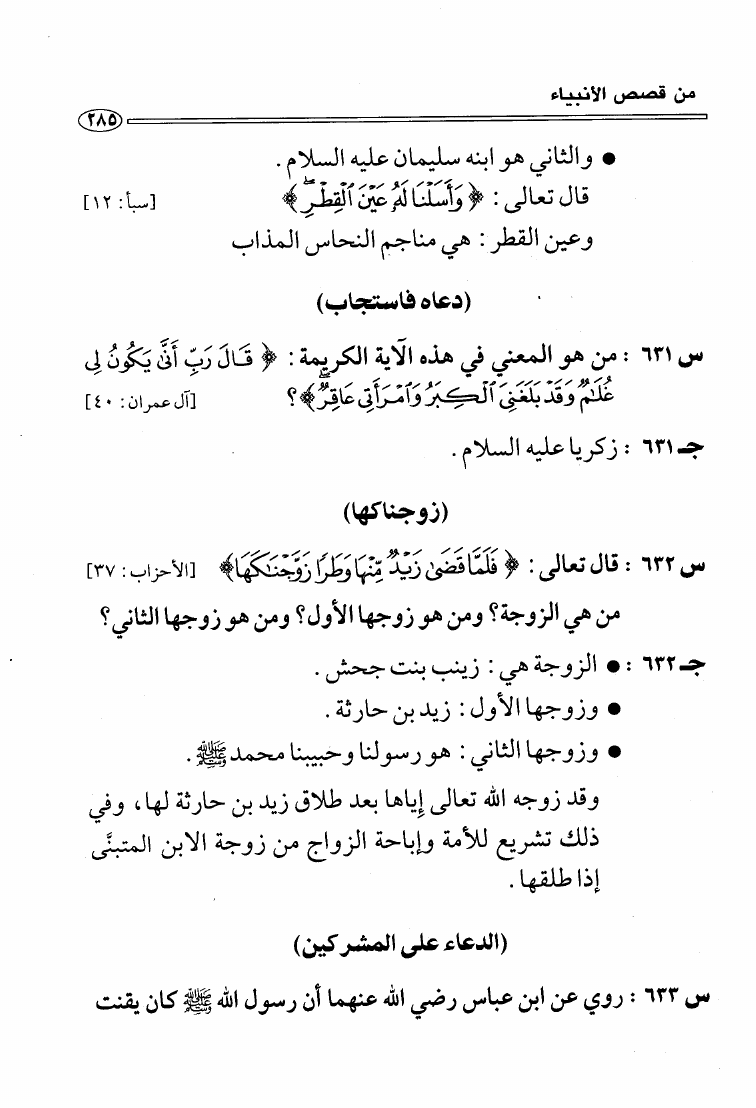 من قصص الأنبياء
٢٨٥
● والثاني هو ابنه سليمان عليه السلام .
قال تعالى : ﴿ وَأَسَلْنَا لَهُۥ عَيْنَ ٱلْقِطْرِۖ ﴾ [سبأ: ١٢]
وعين القطر : هي مناجم النحاس المذاب
(دعاه فاستجاب)
س ٦٣١ : من هو المعني في هذه الآية الكريمة : ﴿ قَالَ رَبِّ أَنَّىٰ يَكُونُ لِى
غُلَـٰمٌ وَقَدْ بَلَغَنِىَ ٱلْكِبَرُ وَٱمْرَأَتِى عَاقِرٌۖ ﴾ ؟ [آل عمران: ٤٠]
جـ ٦٣١ : زكريا عليه السلام .
(زوجناكها)
س ٦٣٢ : قال تعالى : ﴿ فَلَمَّا قَضَىٰ زَيْدٌ مِّنْهَا وَطَرًا زَوَّجْنَـٰكَهَا ﴾ [الأحزاب: ٣٧]
من هي الزوجة؟ ومن هو زوجها الأول؟ ومن هو زوجها الثاني؟
جـ ٦٣٢ : ● الزوجة هي : زينب بنت جحش .
● وزوجها الأول : زيد بن حارثة .
● وزوجها الثاني : هو رسولنا وحبيبنا محمد ﷺ .
وقد زوجه الله تعالى إياها بعد طلاق زيد بن حارثة لها، وفي
ذلك تشريع للأمة وإباحة الزواج من زوجة الابن المتبنَّى
إذا طلقها .
(الدعاء على المشركين)
س ٦٣٣ : روي عن ابن عباس رضي الله عنهما أن رسول الله ﷺ كان يقنت